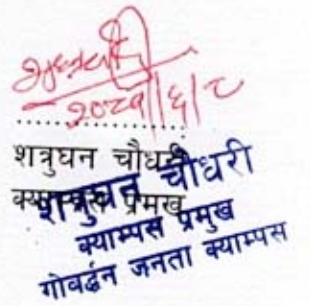 २०८१।६।८
....................
शत्रुघन चौधरी
क्याम्पस प्रमुख
शत्रुघन चौधरी
क्याम्पस प्रमुख
गोवर्द्धन जनता क्याम्पस